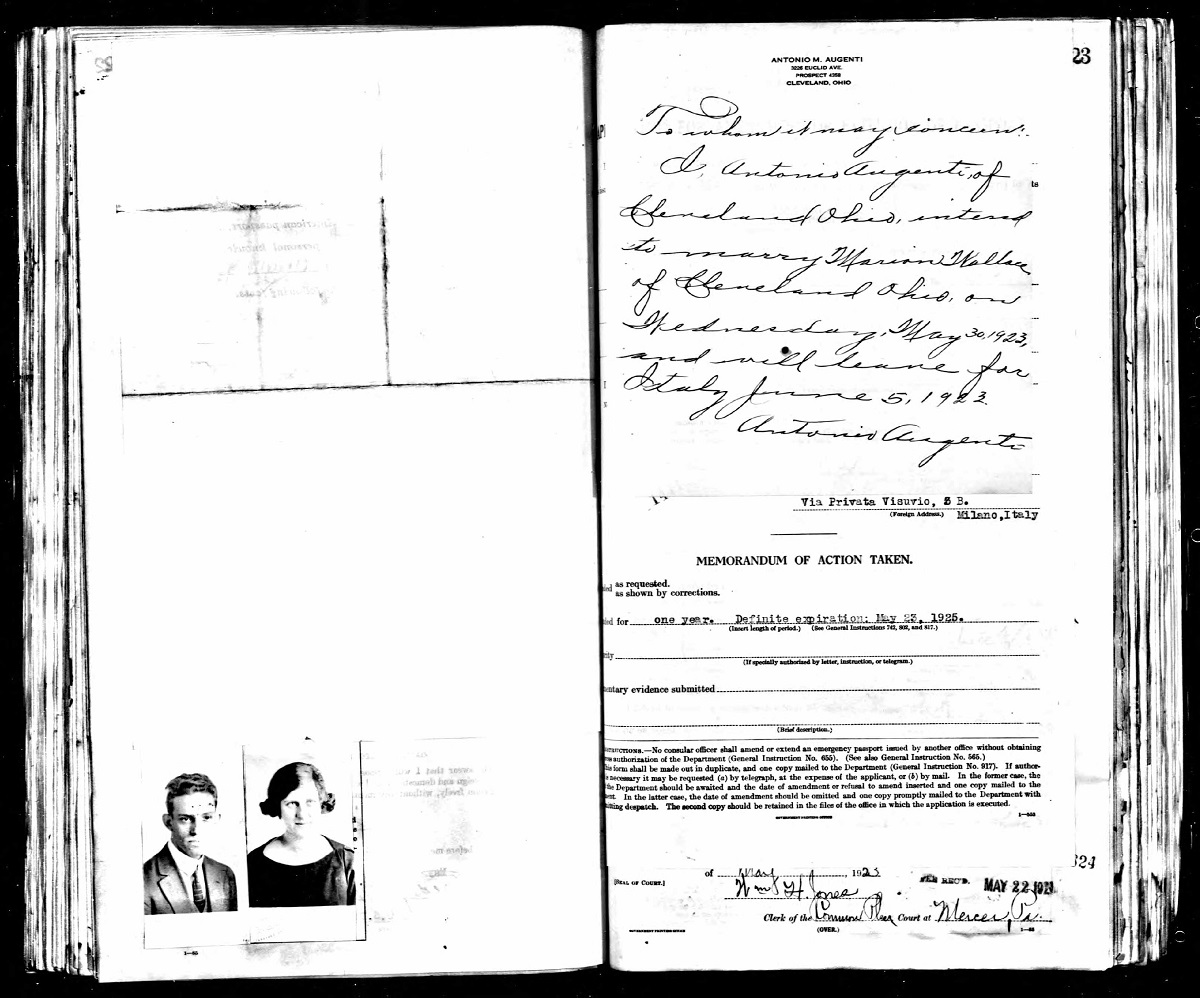 23
ANTONIO M. AUGENTI
3226 EUCLID AVE.
PROSPECT 4358
CLEVELAND, OHIO
To whom it may concern:
I, Antonio Augenti, of
Cleveland Ohio, intend
to marry Marion Wallace
of Cleveland Ohio, on
Wednesday, May 30, 1923,
and will leave for
Italy June 5, 1923.
Antonio Augenti
ts
Via Privata Visuvio, 3 B.
(Foreign Address.) Milano, Italy
MEMORANDUM OF ACTION TAKEN.
as requested.
as shown by corrections.
ded for one year. Definite expiration: May 23, 1925.
(Insert length of period.) (See General Instructions 742, 802, and 817.)
(If specially authorized by letter, instruction, or telegram.)
entary evidence submitted
(Brief description.)
STRUCTIONS.—No consular officer shall amend or extend an emergency passport issued by another office without obtaining
ess authorization of the Department (General Instruction No. 655). (See also General Instruction No. 565.)
his form shall be made out in duplicate, and one copy mailed to the Department (General Instruction No. 917). If author-
is necessary it may be requested (a) by telegraph, at the expense of the applicant, or (b) by mail. In the former case, the
the Department should be awaited and the date of amendment or refusal to amend inserted and one copy mailed to the
ent. In the latter case, the date of amendment should be omitted and one copy promptly mailed to the Department with
itting despatch. The second copy should be retained in the files of the office in which the application is executed.
GOVERNMENT PRINTING OFFICE
324
of May, 1923
[SEAL OF COURT.]
Wm H. Jones
FEE REC'D. MAY 22 1923
Clerk of the Common Pleas Court at Mercer, Pa.
(OVER.)
GOVERNMENT PRINTING OFFICE